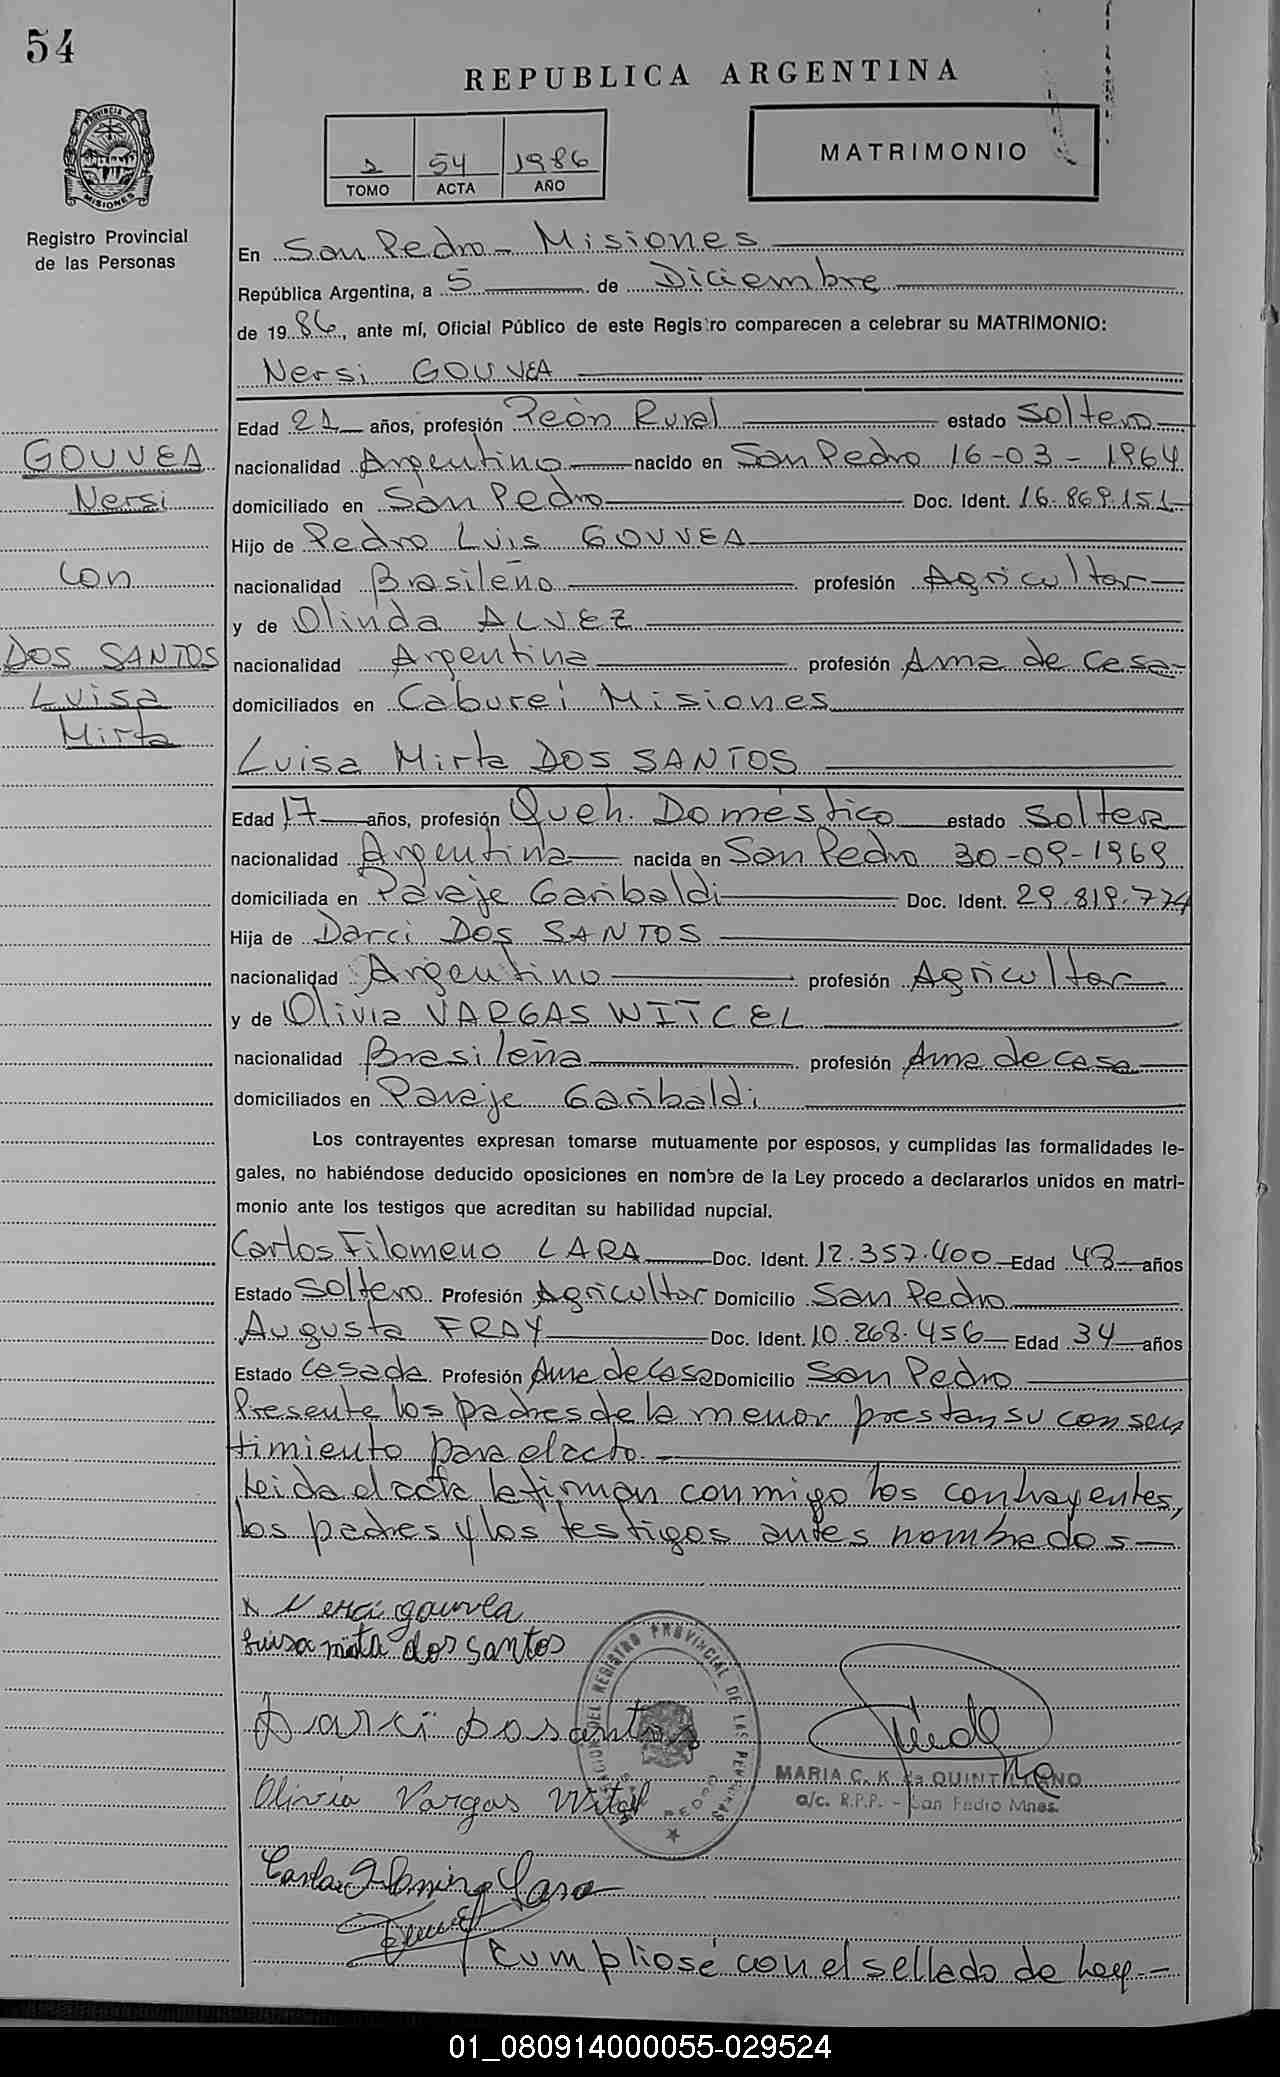 54
REPUBLICA ARGENTINA
PROVINCIA DE
MISIONES
Registro Provincial
de las Personas
1 54 1986
TOMO ACTA AÑO
MATRIMONIO
En San Pedro - Misiones
República Argentina, a 5 de Diciembre
de 1986, ante mí, Oficial Público de este Registro comparecen a celebrar su MATRIMONIO:
Nersi GOUVEA
Edad 21 años, profesión Peòn Rural estado Soltero
nacionalidad Argentino nacido en San Pedro 16-03-1964
domiciliado en San Pedro Doc. Ident. 16.869.151
Hijo de Pedro Luis GOUVEA
nacionalidad Brasileño profesión Agricultor
y de Olinda ALVEZ
nacionalidad Argentina profesión Ama de Casa
domiciliados en Caburei Misiones
GOUVEA
Nersi
Con
DOS SANTOS
Luisa
Mirta
Luisa Mirta DOS SANTOS
Edad 17 años, profesión Queh. Doméstico estado Soltera
nacionalidad Argentina nacida en San Pedro 30-09-1969
domiciliada en Paraje Garibaldi Doc. Ident. 29.819.774
Hija de Darci DOS SANTOS
nacionalidad Argentino profesión Agricultor
y de Olivia VARGAS WITCEL
nacionalidad Brasileña profesión Ama de casa
domiciliados en Paraje Garibaldi
Los contrayentes expresan tomarse mutuamente por esposos, y cumplidas las formalidades le-
gales, no habiéndose deducido oposiciones en nombre de la Ley procedo a declararlos unidos en matri-
monio ante los testigos que acreditan su habilidad nupcial.
Carlos Filomeno LARA Doc. Ident. 12.357.400 Edad 43 años
Estado Soltero Profesión Agricultor Domicilio San Pedro
Augusta FRAY Doc. Ident. 10.268.456 Edad 34 años
Estado Casada Profesión Ama de Casa Domicilio San Pedro
Presente los padres de la menor prestan su consen
timiento para el acto.
Leida el acta la firman conmigo los contrayentes,
los padres y los testigos antes nombrados
x Nersi gouvea
Luisa mirta dos santos
Darci Dosantos
Olivia Vargas Witcel
MARIA C. K. de QUINTILIANO
a/c. R.P.P. - San Pedro Mnes.
REGISTRO PROVINCIAL DE LAS PERSONAS
Carlos Filomeno Lara
Cumpliose con el sellado de ley.-
01_080914000055-029524